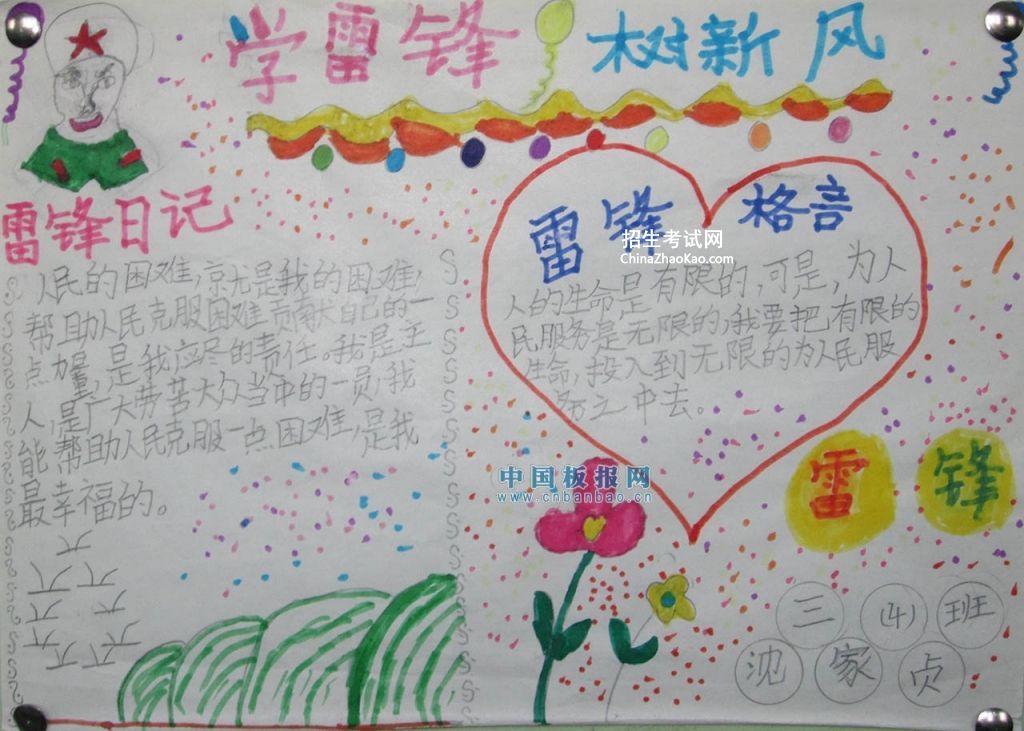 学雷锋 树新风
雷锋日记
人民的困难,就是我的困难,
帮助人民克服困难贡献自己的一
点力量,是我应尽的责任。我是主
人,是广大劳苦大众当中的一员,我
能帮助人民克服一点困难,是我
最幸福的。
雷锋 格言
人的生命是有限的,可是,为人
民服务是无限的,我要把有限的
生命,投入到无限的为人民服
务之中去。
招生考试网
ChinaZhaoKao.com
中国板报网
www.cnbanbao.cn
雷锋
三(4)班
沈家贞